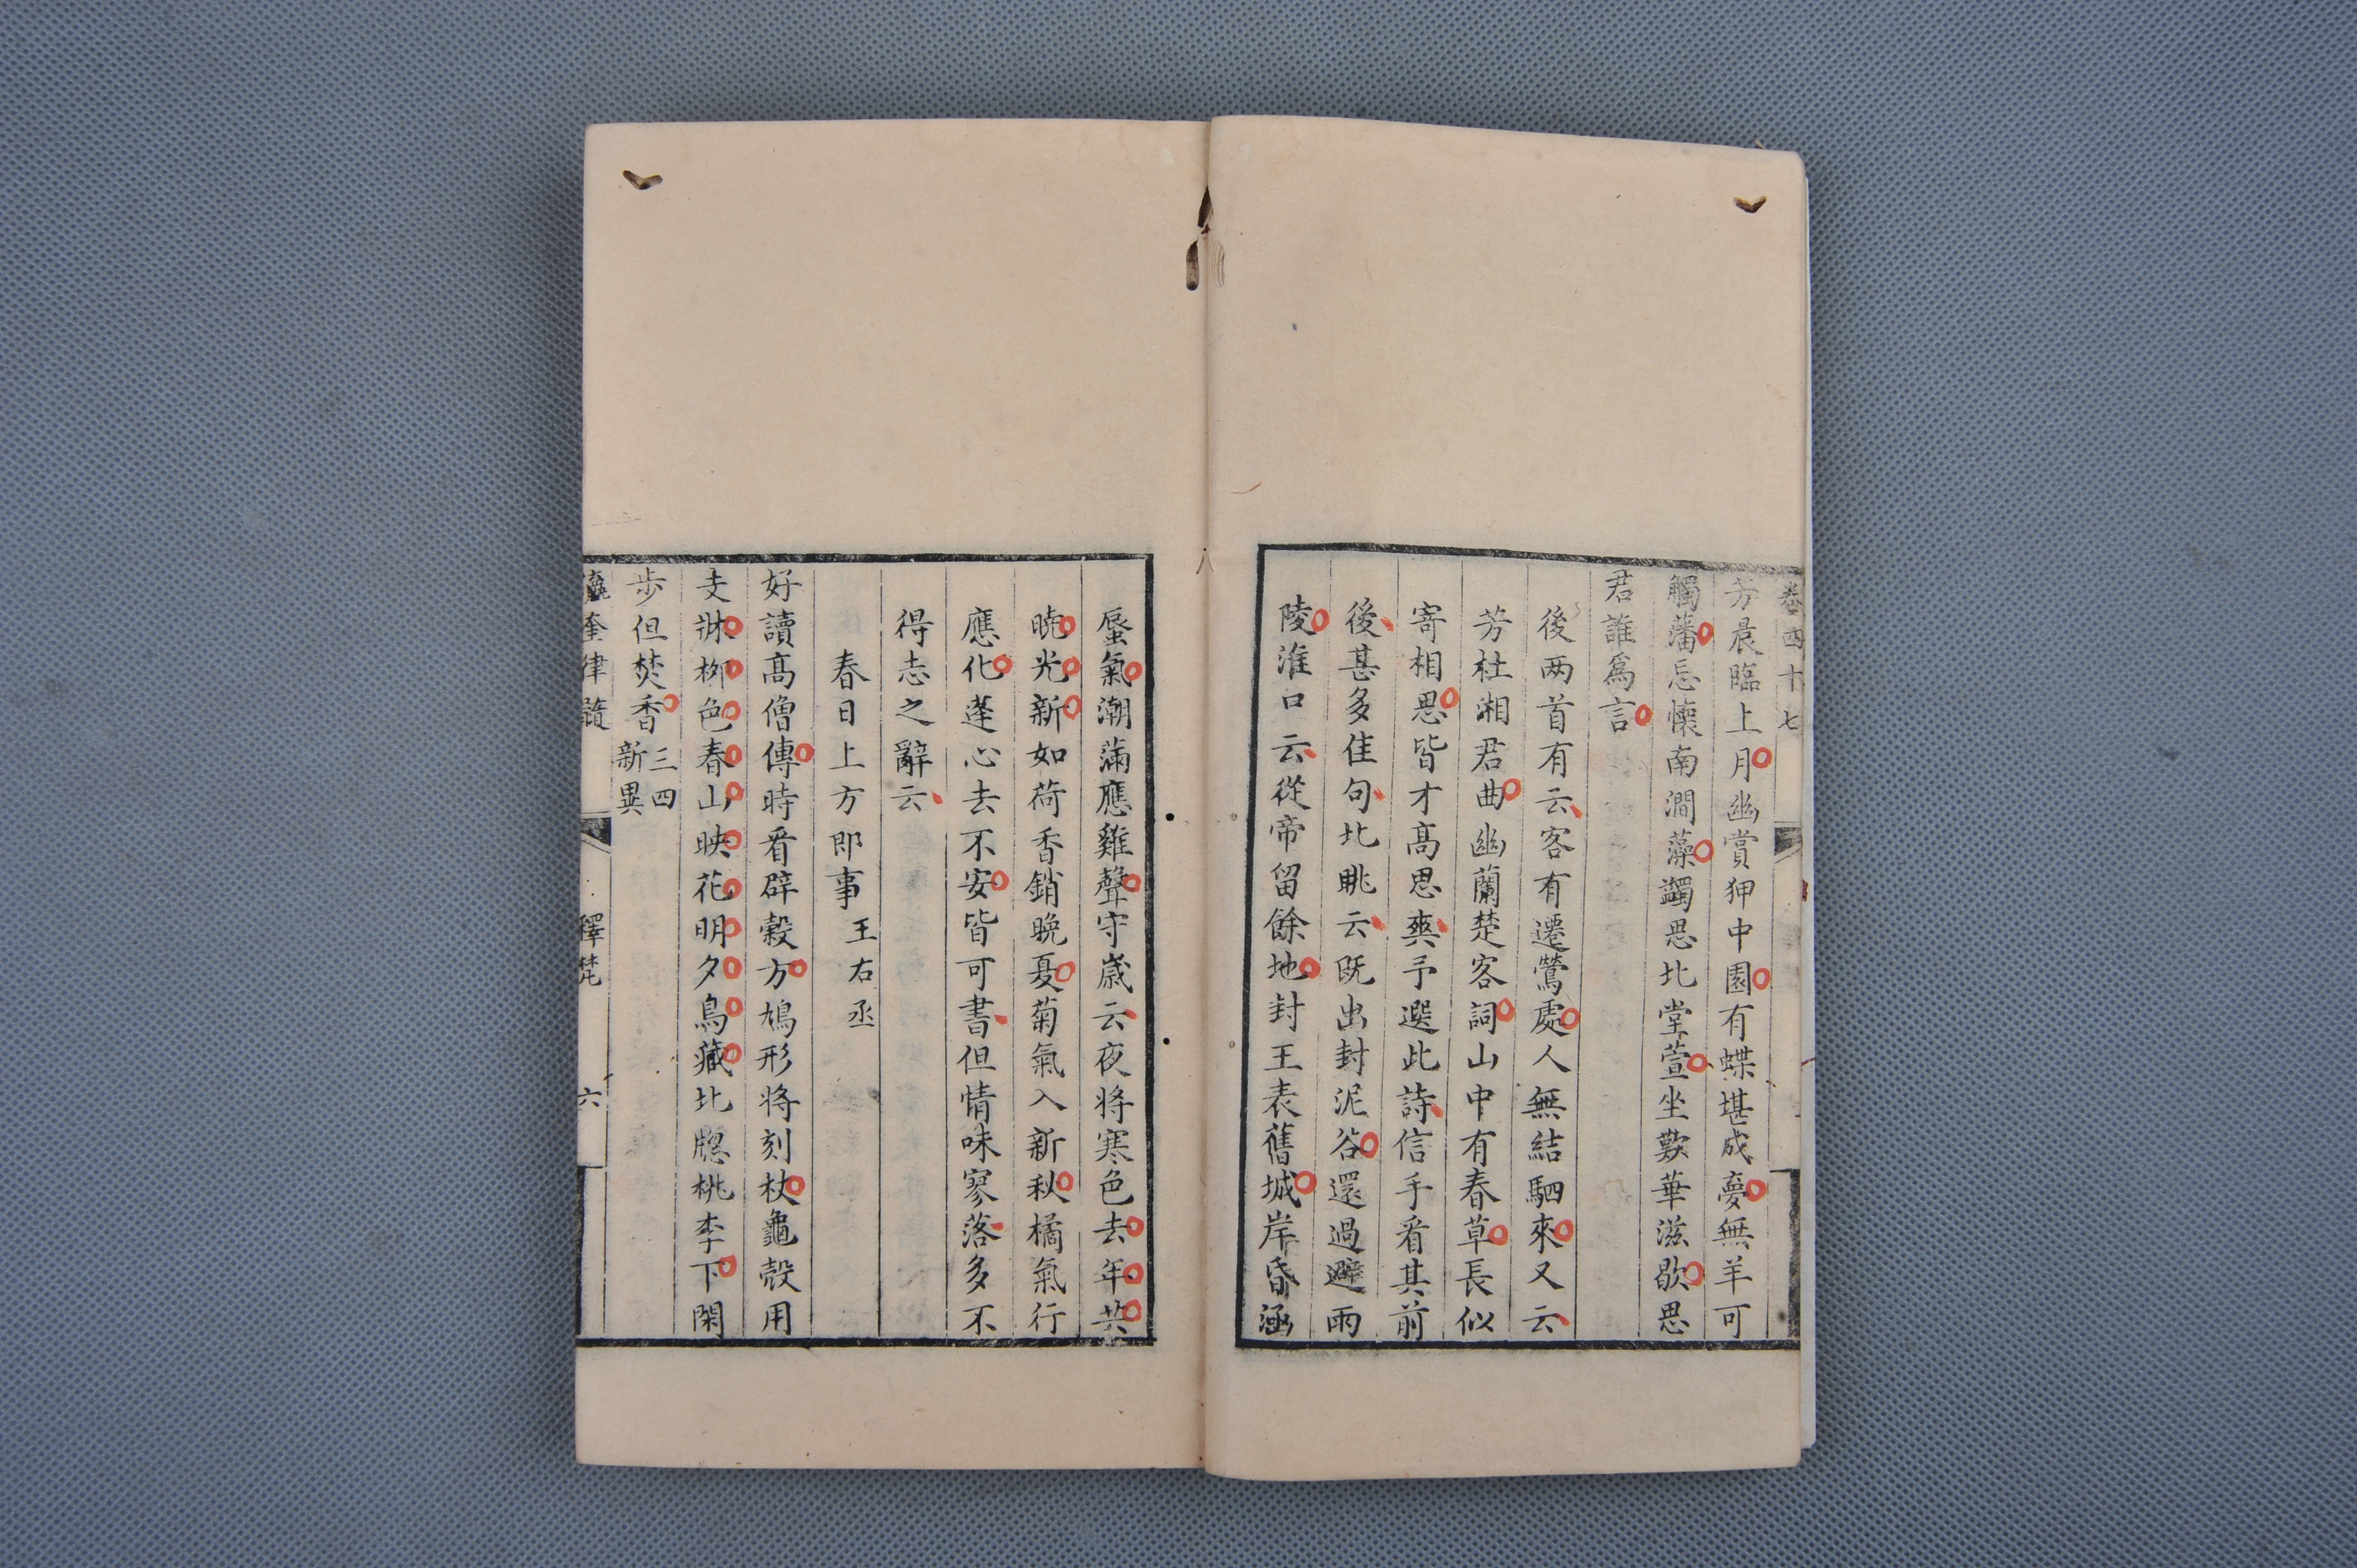 卷四十七
芳晨臨上月幽賞狎中園有蝶堪成夢無羊可
觸藩忘懷南澗藻蠲思北堂萱坐歎華滋歇思
君誰爲言
後两首有云客有遷鶯處人無結駟來又云
芳杜湘君曲幽蘭楚客詞山中有春草長似
寄相思皆才髙思爽予選此詩信手看其前
後甚多佳句北眺云既出封泥谷還過避雨
陵淮口云從帝留餘地封王表舊城岸昏涵
蜃氣潮滿應雞聲守嵗云夜将寒色去年共
暁光新如荷香銷晚夏菊氣入新秋橘氣行
應化蓬心去不安皆可書但情味寥落多不
得志之辭云
春日上方即事 王右丞
好讀髙僧傳時看辟糓方鳩形将刻杖龜殻用
支牀栁色春山映花明夕鳥藏北牎桃李下閑
步但焚香 三四新異
瀛奎律髓 釋梵 六